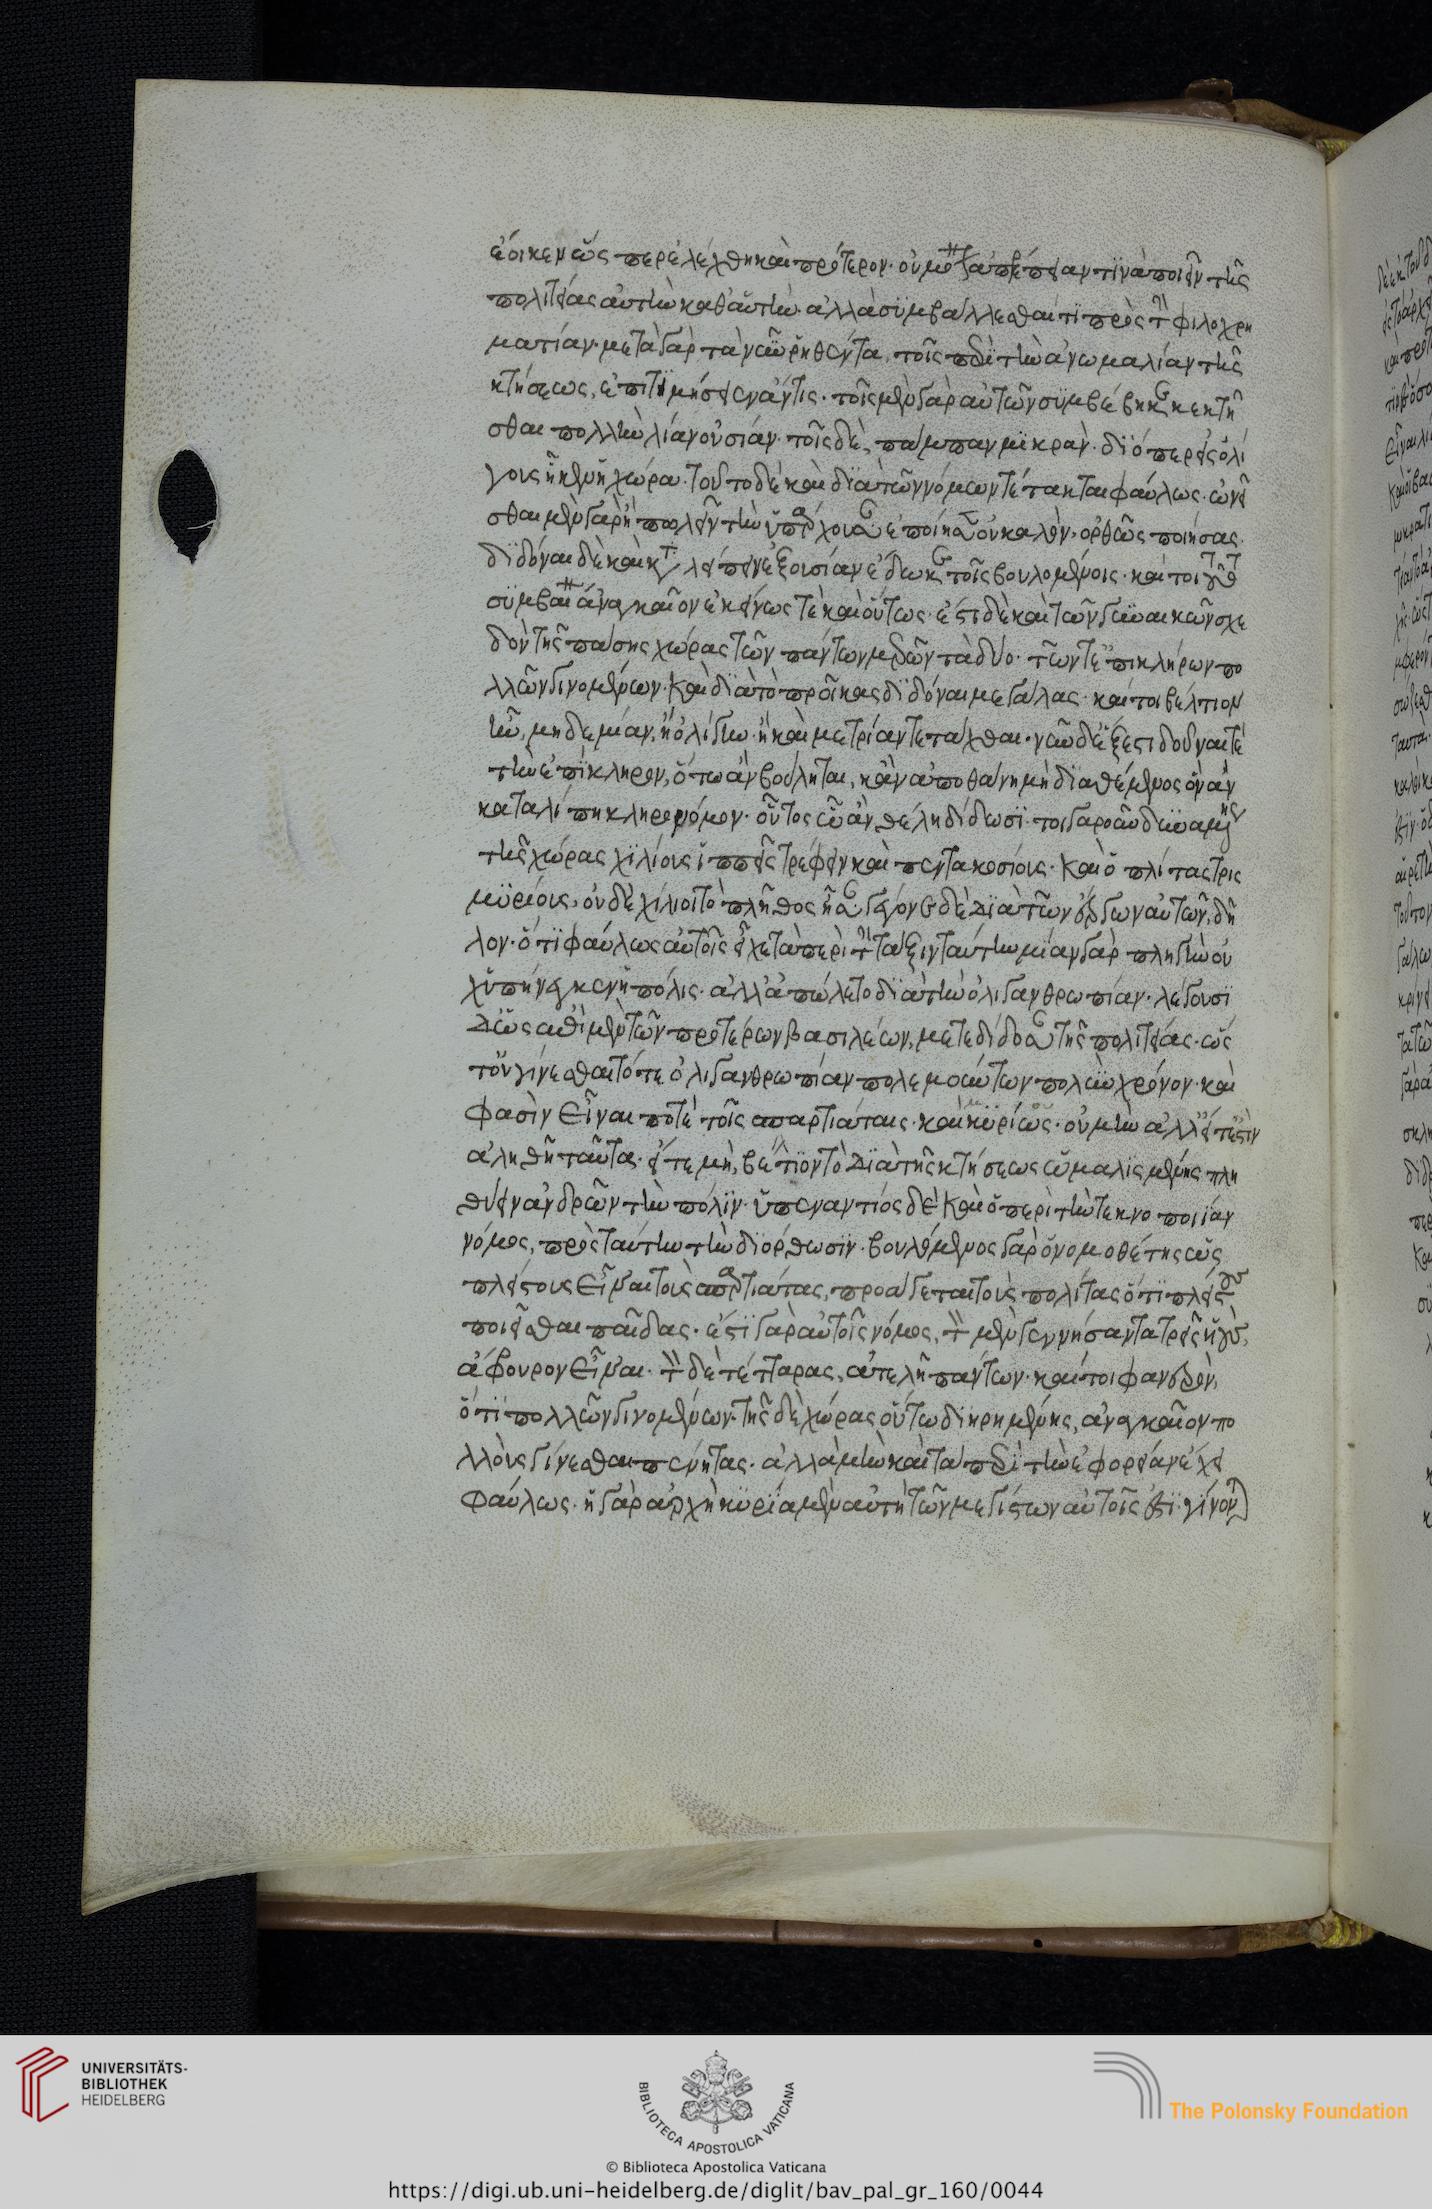 ἔοικεν ὥσπερ ἐλέχθη καὶ πρότερον. οὐ μόνον ἀπρέπειάν τινα ποιεῖν τῆς
πολιτείας αὐτὴν καθ' αὑτήν. ἀλλὰ συμβάλλεσθαί τι πρὸς τὴν φιλοχρη
ματίαν. μετὰ γὰρ τὰ νῦν ῥηθέντα, τοῖς περὶ τὴν ἀνωμαλίαν τῆς
κτήσεως, ἐπιτιμήσειεν ἄν τις. τοῖς μὲν γὰρ αὐτῶν συμβέβηκε κεκτῆ
σθαι πολλὴν λίαν οὐσίαν. τοῖς δὲ, πάμπαν μικράν. διόπερ εἰς ὀλί
γους ἧκεν ἡ χώρα. τοῦτο δὲ καὶ διὰ τῶν νόμων τέτακται φαύλως. ὠνεῖ
σθαι μὲν γὰρ ἢ πωλεῖν τὴν ὑπάρχουσαν ἐποίησεν οὐ καλὸν, ὀρθῶς ποιήσας.
διδόναι δὲ καὶ καταλείπειν ἐξουσίαν ἔδωκε τοῖς βουλομένοις. καίτοι
συμβαίνειν ἀναγκαῖον ἐκείνως τε καὶ οὕτως. ἔστι δὲ καὶ τῶν γυναικῶν σχε
δὸν τῆς πάσης χώρας τῶν πάντων μερῶν τὰ δύο. τῶν τε ἐπικλήρων πο
λλῶν γινομένων. καὶ διὰ τὸ προῖκας διδόναι μεγάλας. καίτοι βέλτιον
ἦν, μηδεμίαν, ἢ ὀλίγην. ἢ καὶ μετρίαν τετάχθαι. νῦν δὲ ἔξεστι δοῦναί τε
τὴν ἐπίκληρον, ὅτῳ ἂν βούληται, κἂν ἀποθάνῃ μὴ διαθέμενος ὃν ἂν
καταλίπῃ κληρονόμον. οὗτος ᾧ ἂν θέλῃ δίδωσι. τοιγαροῦν δυναμένης
τῆς χώρας χιλίους ἱππεῖς τρέφειν καὶ πεντακοσίους. καὶ ὁπλίτας τρις
μυρίους, οὐδὲ χίλιοι τὸ πλῆθος ἦσαν. γέγονε δὲ διὰ τῶν ἔργων αὐτῶν, δῆ
λον. ὅτι φαύλως αὐτοῖς εἶχε τὰ περὶ τὴν τάξιν ταύτην μίαν γὰρ πληγὴν οὐ
χ' ὑπήνεγκεν ἡ πόλις. ἀλλ' ἀπώλετο διὰ τὴν ὀλιγανθρωπίαν. λέγουσι
δ' ὡς ἐπὶ μὲν τῶν προτέρων βασιλέων, μετεδίδοσαν τῆς πολιτείας. ὥς
τ' οὐ γίνεσθαι τότε ὀλιγανθρωπίαν πολεμούντων πολὺν χρόνον. καὶ
φασὶν εἶναι ποτὲ τοῖς σπαρτιάταις. καὶ μυρίους. οὐ μὴν ἀλλ' εἴτ' ἐστιν
ἀληθῆ ταῦτα. εἴτε μὴ, βέλτιον τὸ διὰ τῆς κτήσεως ὡμαλισμένης πλη
θύειν ἀνδρῶν τὴν πόλιν. ὑπεναντίος δὲ καὶ ὁ περὶ τὴν τεκνοποιίαν
νόμος, πρὸς ταύτην τὴν διόρθωσιν. βουλόμενος γὰρ ὁ νομοθέτης ὡς
πλείστους εἶναι τοὺς σπαρτιάτας, προάγεται τοὺς πολίτας ὅτι πλείστους
ποιεῖσθαι παῖδας. ἔστι γὰρ αὐτοῖς νόμος, τὸν μὲν γεννήσαντα τρεῖς υἱοὺς,
ἄφρουρον εἶναι. τὸν δὲ τέτταρας, ἀτελῆ πάντων. καίτοι φανερὸν,
ὅτι πολλῶν γινομένων. τῆς δὲ χώρας οὕτω διῃρημένης, ἀναγκαῖον πο
λλοὺς γίνεσθαι πένητας. ἀλλὰ μὴν καὶ τὰ περὶ τὴν ἐφορείαν ἔχει
φαύλως. ἡ γὰρ ἀρχὴ κυρία μὲν αὐτὴ τῶν μεγίστων αὐτοῖς ἐστι. γίνονται
UNIVERSITÄTS-
BIBLIOTHEK
HEIDELBERG
BIBLIOTECA APOSTOLICA VATICANA
The Polonsky Foundation
© Biblioteca Apostolica Vaticana
https://digi.ub.uni-heidelberg.de/diglit/bav_pal_gr_160/0044